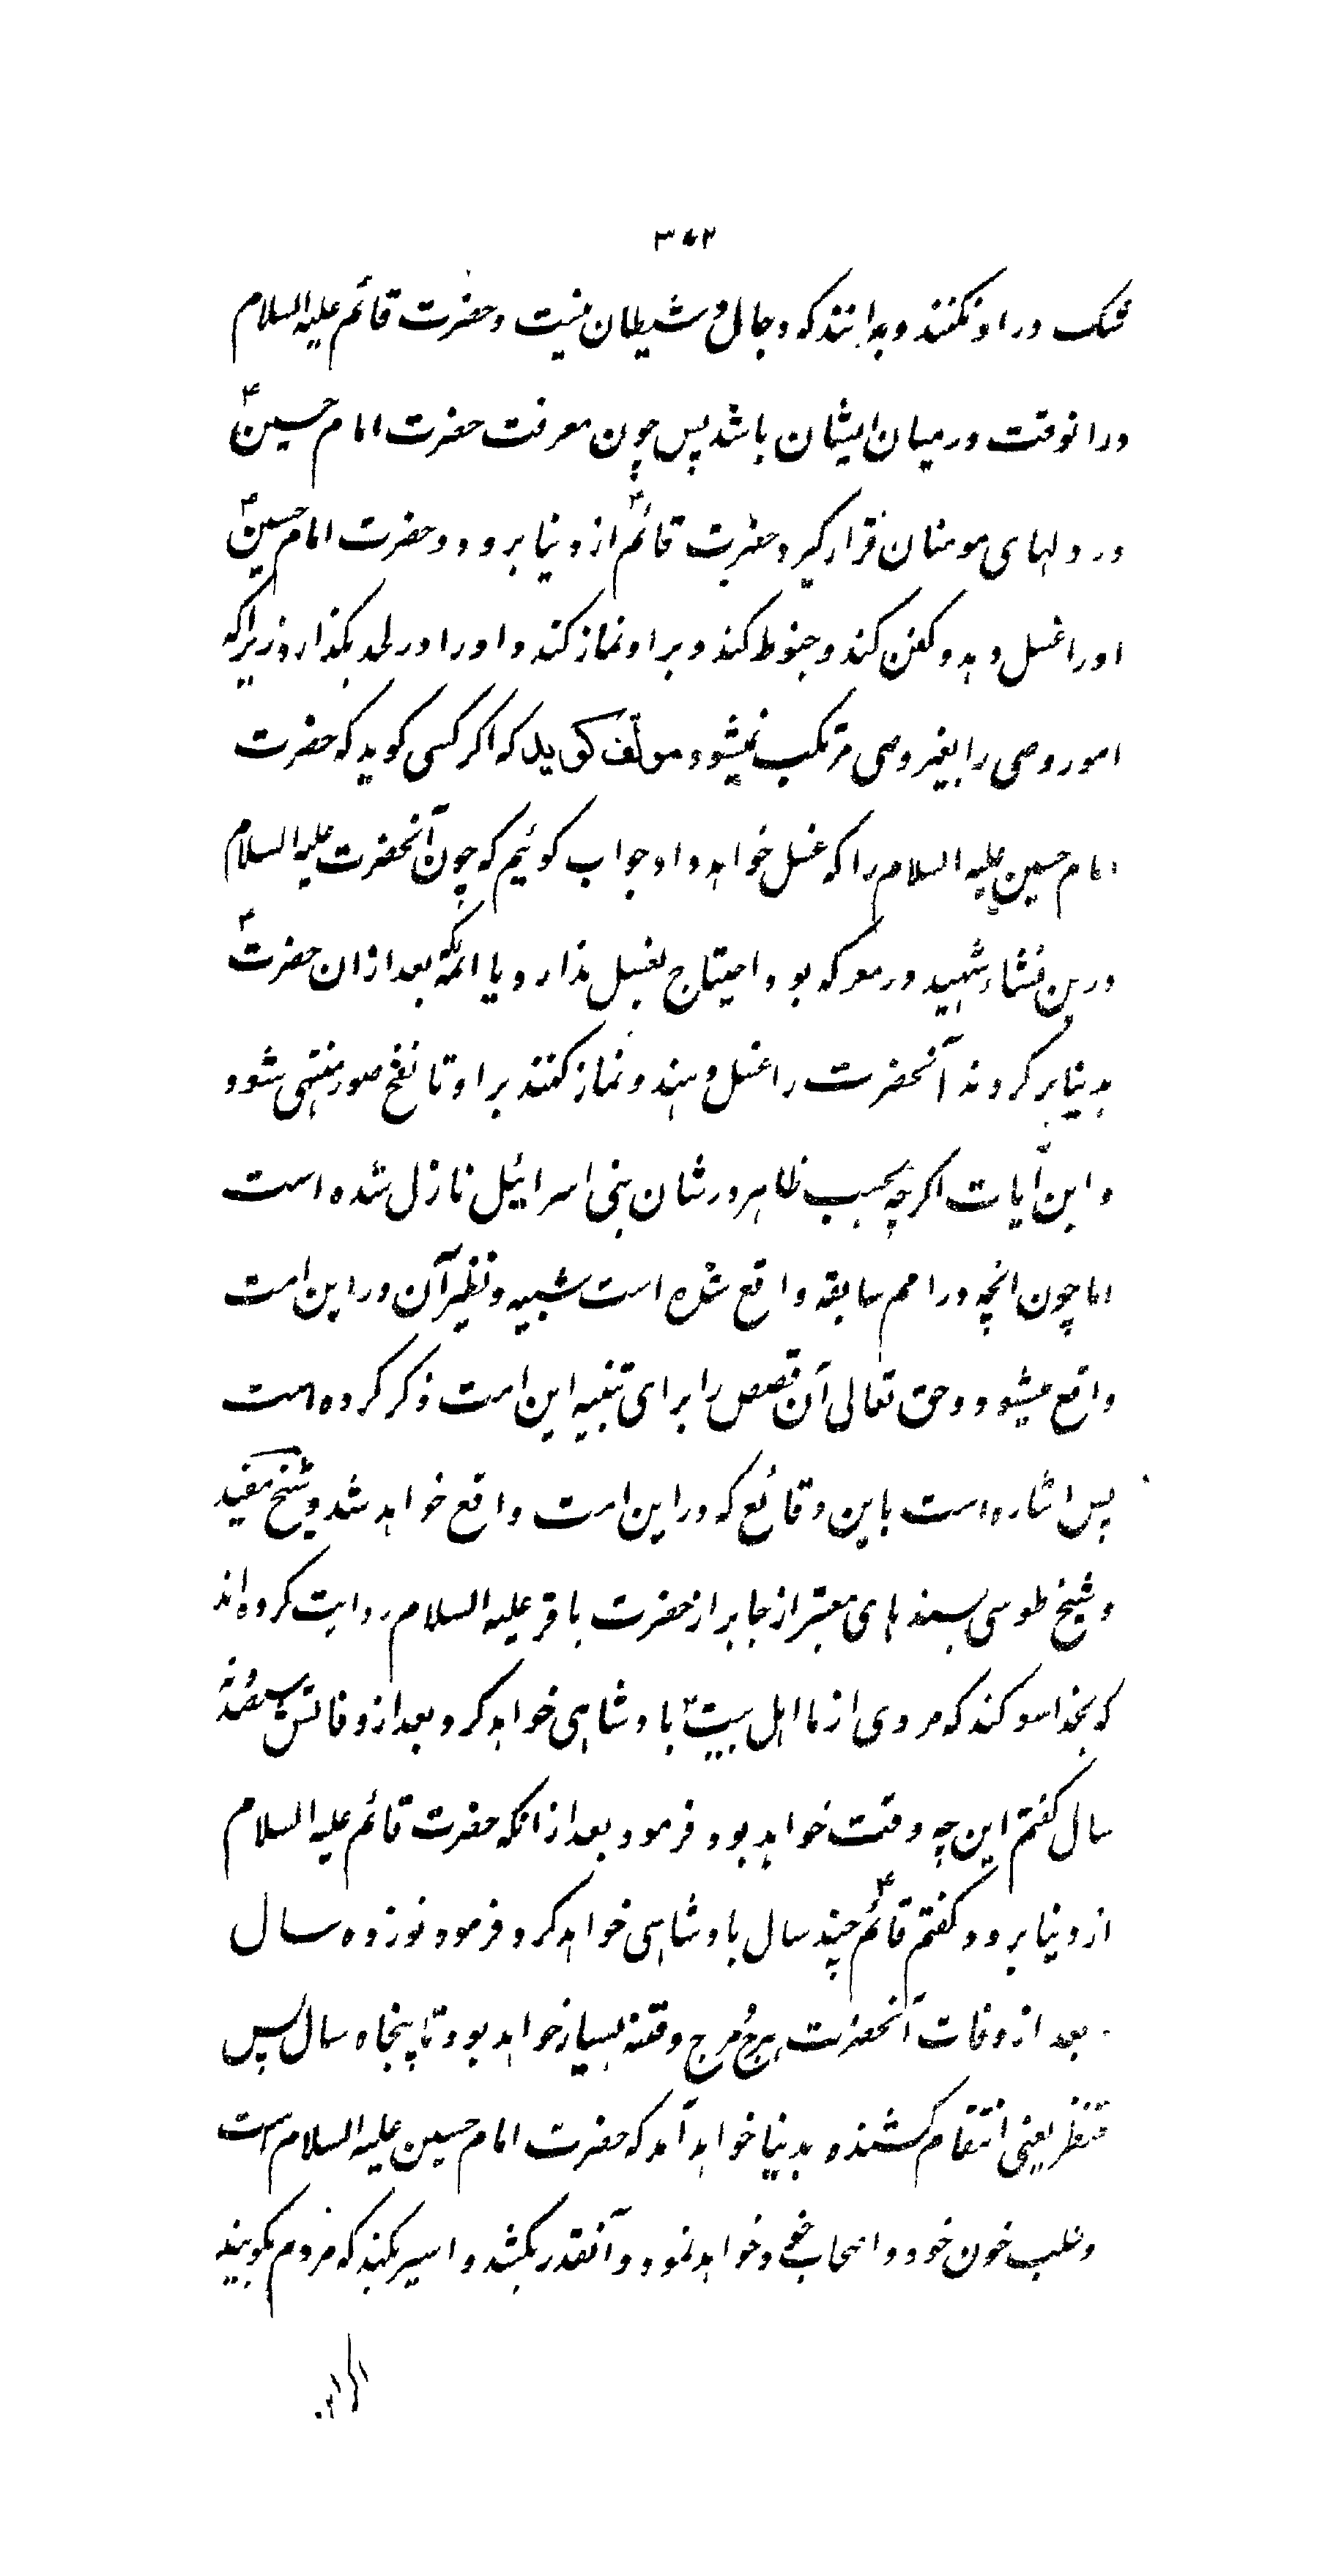 ۳۵۲
شک در او نکنند و بدانند که دجال و شیطان نیست و حضرت قائم علیه السلام
درانوقت درمیان ایشان باشد پس چون معرفت حضرت امام حسین ع
در دلهای مومنان قرار گیرد حضرت قائم ع از دنیا برود و حضرت امام حسین ع
اورا غسل دهد و کفن کند و حنوط کند و بر او نماز کند و اورا در لحد بگذارد زیرا که
امور وصی را بغیر وصی مرتکب نمیشود مولف کوید که اکر کسی کوید که حضرت
امام حسین علیه السلام را که غسل خواهد داد جواب کوئیم که چون آنحضرت علیه السلام
درین نشاء شهید در معرکه بود احتیاج بغسل ندارد یا ائمّهٔ بعد ازان حضرت ع
بدنیا بر کردند آنحضرت را غسل دهند و نماز کنند بر او تا نفخ صور منتهی شود
و این آیات اکرچه بحسب ظاهر در شان بنی اسرائیل نازل شده است
اما چون انچه در امم سابقه واقع شده است شبیه و نظیر آن در این امت
واقع میشود و حق تعالی آن قصص را برای تنبیه این امت ذکر کرده است
پس اشاره است باین وقائع که در این امت واقع خواهد شد و شیخ مفید
و شیخ طوسی بسندهای معتبر از جابر از حضرت باقر علیه السلام روایت کرده اند
که بخدا سوکند که مردی از ما اهل بیت ع بادشاهی خواهد کرد بعد از وفاتش
سال کفتم این چه وقت خواهد بود فرمود بعد از انکه حضرت قائم علیه السلام
از دنیا برود کفتم قائم ع چند سال بادشاهی خواهد کرد فرمود نوزده سال
بعد از وفات آنحضرت هرج مرج و فتنه بسیار خواهد بود تا پنجاه سال پس
منتظر یعنی انتقام کشنده بدنیا خواهد آمد که حضرت امام حسین علیه السلام است
و طلب خون خود و اصحاب خود خواهد نمود و آنقدر بکشد و اسیر بکند که مردم بکویند